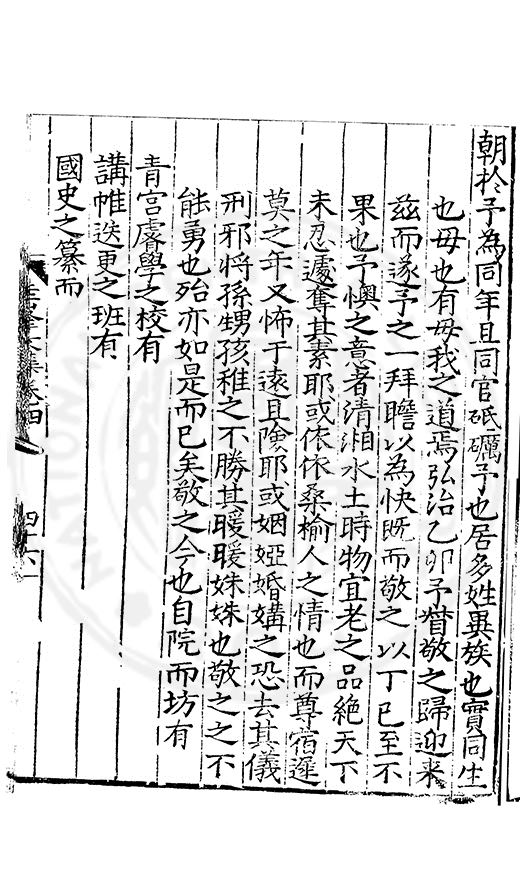 朝於予為同年且同官砥礪予也居多姓異族也實同生
也毋也有毋我之道焉弘治乙卯予嘗敬之歸迎来
茲而遂予之一拜瞻以為快既而敬之以丁巳至不
果也予懊之意者清湘水土時物宜老之品絶天下
未忍遽奪其素耶或依依桑榆人之情也而尊宿遲
莫之年又怖于遠且險耶或姻婭婚媾之恐去其儀
刑邪将孫甥孩稚之不勝其暖暖姝姝也敬之之不
能勇也殆亦如是而已矣敬之今也自院而坊有
青宫睿學之校有
講帷迭更之班有
國史之纂而